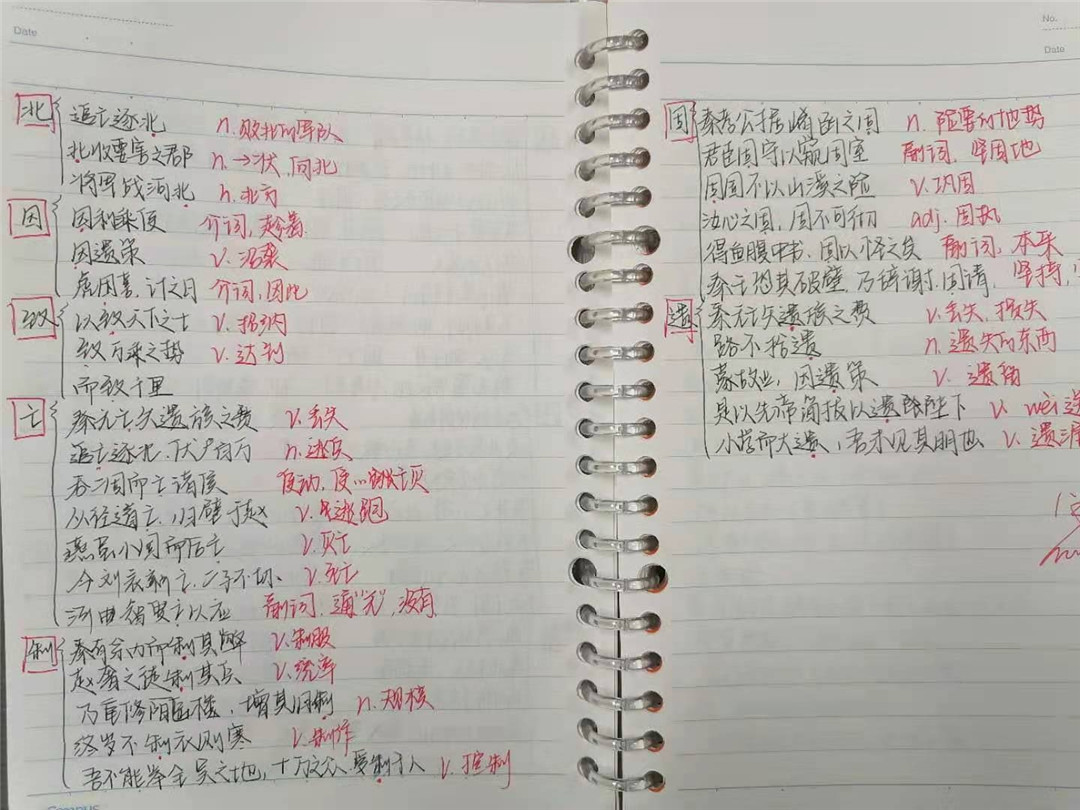 Date
北
追亡逐北 n.败北的军队
北收要害之郡 n.→状,向北
将军战河北 n.北方
因
因利乘便 介词,趁着
因遗策 v.沿袭
虑困甚,计之日 介词,因此
致
以致天下之士 v.招纳
致万乘之势 v.达到
而致千里
亡
秦无亡矢遗镞之费 v.丢失
追亡逐北,伏尸百万 n.逃兵
吞二周而亡诸侯 使动,使…灭亡
从径道亡,归璧于赵 v.逃跑
燕虽小国而后亡 v.灭亡
今刘表新亡,二子不协 v.死亡
河曲智叟亡以应 副词,通“无”,没有
制
秦有余力而制其弊 v.制服
赵奢之徒制其兵 v.统率
乃重修阳岳楼,增其旧制 n.规模
终岁不制衣则寒 v.制作
吾不能举全吴之地,十万之众,受制于人 v.控制
Campus
No.
Date
固
秦孝公据崤函之固 n.险要的地势
君臣固守以窥周室 副词,坚固地
固国不以山溪之险 v.巩固
汝心之固,固不可彻 adj.固执
得鱼腹中书,固以怪之矣 副词,本来
秦王恐其破璧,乃辞谢,固请, 坚持,
遗
秦无亡矢遗镞之费 v.丢失,损失
路不拾遗 n.遗失的东西
蒙故业,因遗策 v.遗留
是以先帝简拔以遗陛下 v.wei
小学而大遗,吾未见其明也 v.遗漏